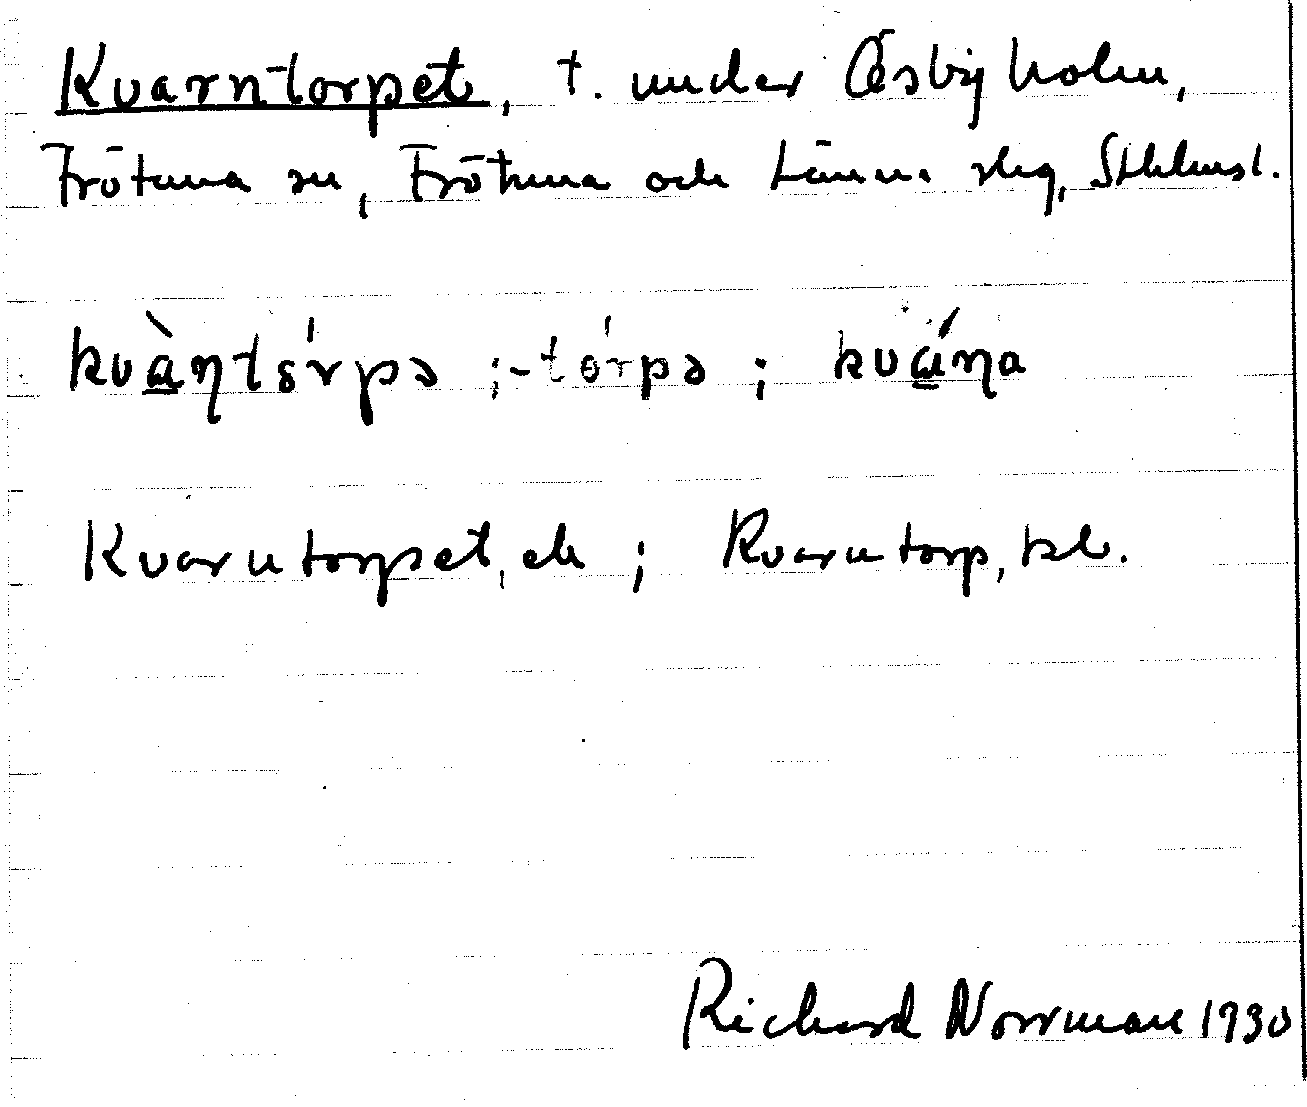 Kvarntorpet, t. under Östbyholm,
Frötuna sn, Frötuna och Länna slg, Sthlmsl.
kvàŋtsr'pə ; -tórpə ; kváŋa
Kvarntorpet, ek ; Kvarntorp, tsl.
Richard Norrman 1930